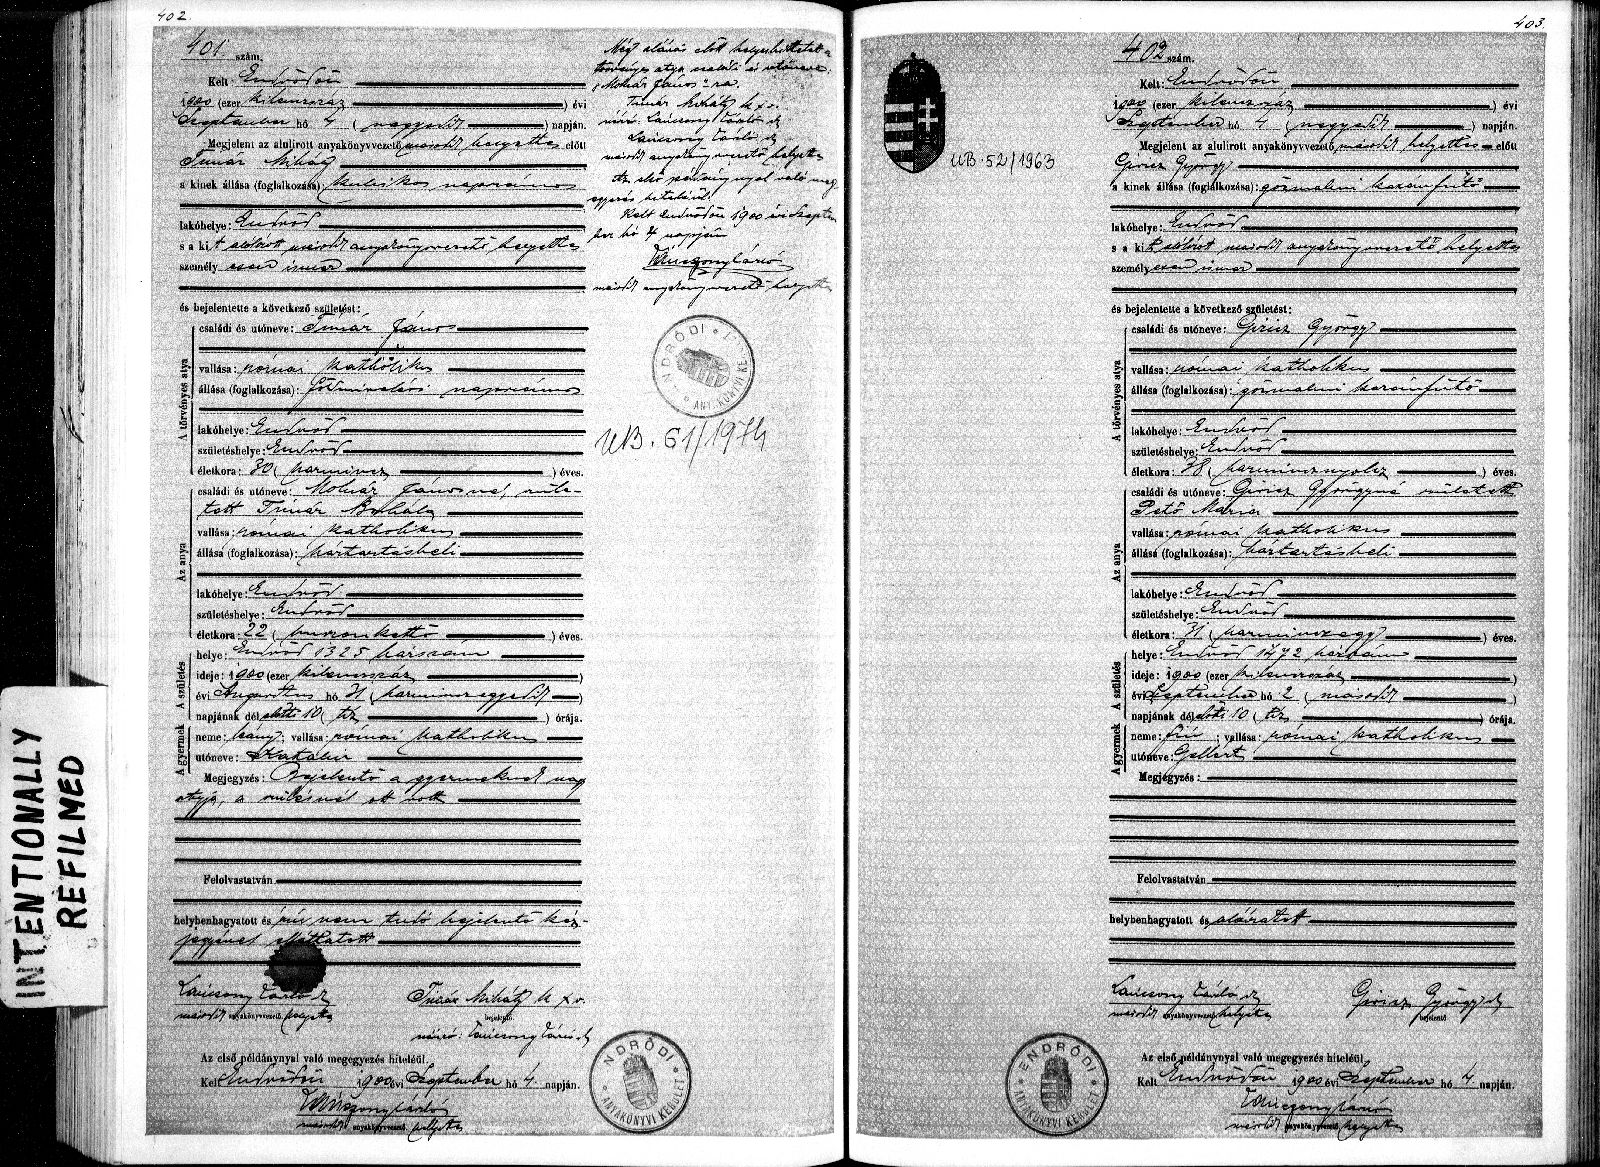 402.
401 szám.
Kelt Endrődön
1900 (ezer kilenczszáz) évi
Szeptember hó 4 (negyedik) napján.
Megjelent az alulirott anyakönyvvezető második helyettes előtt
Timár Mihály
a kinek állása (foglalkozása): kubikos napszámos
lakóhelye: Endrőd
s a kit alólirott második anyakönyvvezető helyettes
személyesen ismer
és bejelentette a következő születést:
A törvényes atya
családi és utóneve: Timár János
vallása: római katholikus
állása (foglalkozása): földmivelési napszámos
lakóhelye: Endrőd
születéshelye: Endrőd
életkora: 30 (harmincz) éves.
Az anya
családi és utóneve: Molnár Jánosné, szüle-
tett Timár Borbála
vallása: római katholikus
állása (foglalkozása): háztartásbeli
lakóhelye: Endrőd
születéshelye: Endrőd
életkora: 22 (huszonkettő) éves.
A születés
helye: Endrőd 1325 házszám
ideje: 1900 (ezer kilenczszáz)
évi Augusztus hó 31 (harminczegyedik)
napjának délelőtti 10 (tíz) órája.
A gyermek
neme: leány; vallása: római katholikus
utóneve: Katalin
Megjegyzés: Bejelentő a gyermeknek nagy
atyja, a szülésnél ott volt
Felolvastatván
helybenhagyatott és irni nem tudó bejelentő kéz-
jegyével elláttatott
Lancsony Károly
második anyakönyvvezető helyettes
Timár Mihály k x v.
bejelentő.
névíró: Lancsony Károly
Az első példánynyal való megegyezés hiteléül.
Kelt Endrődön 1900 évi Szeptember hó 4 napján.
második anyakönyvvezető helyettes
ENDRŐDI ANYAKÖNYVI KERÜLET
Még aláirás előtt helyesbittetett a
törvényes atya családi és utóneve:
"Molnár János"-ra.
Timár Mihály k x v.
második anyakönyvvezető helyettes
Az első példánynyal való meg
egyezés hiteléül.
Kelt Endrődön 1900 évi Szeptem
ber hó 4 napján
második anyakönyvvezető helyettes
ENDRŐDI ANY. KÖNYVI KER.
UB. 61/1974
INTENTIONALLY
REFILMED
403.
402 szám.
Kelt: Endrődön
1900 (ezer kilenczszáz) évi
Szeptember hó 4 (negyedik) napján.
Megjelent az alulirott anyakönyvvezető második helyettes előtt
Giricz György
a kinek állása (foglalkozása): gőzmalmi kazánfűtő
lakóhelye: Endrőd
s a kit alólirott második anyakönyvvezető helyettes
személyesen ismer
és bejelentette a következő születést:
A törvényes atya
családi és utóneve: Giricz György
vallása: római katholikus
állása (foglalkozása): gőzmalmi kazánfűtő
lakóhelye: Endrőd
születéshelye: Endrőd
életkora: 38 (harmincznyolcz) éves.
Az anya
családi és utóneve: Giricz Györgyné született
Pető Mária
vallása: római katholikus
állása (foglalkozása): háztartásbeli
lakóhelye: Endrőd
születéshelye: Endrőd
életkora: 31 (harminczegy) éves.
A születés
helye: Endrőd 1472 házszám
ideje: 1900 (ezer kilenczszáz)
évi Szeptember hó 2 (második)
napjának délelőtti 10 (tíz) órája.
A gyermek
neme: fiú; vallása: római katholikus
utóneve: Gellért
Megjegyzés:
Felolvastatván
helybenhagyatott és aláiratott
Lancsony Károly
második anyakönyvvezető helyettes
Giricz György
bejelentő
Az első példánynyal való megegyezés hiteléül.
Kelt Endrődön 1900 évi Szeptember hó 4 napján.
második anyakönyvvezető helyettes
ENDRŐDI ANYAKÖNYVI KERÜLET
UB. 52/1963